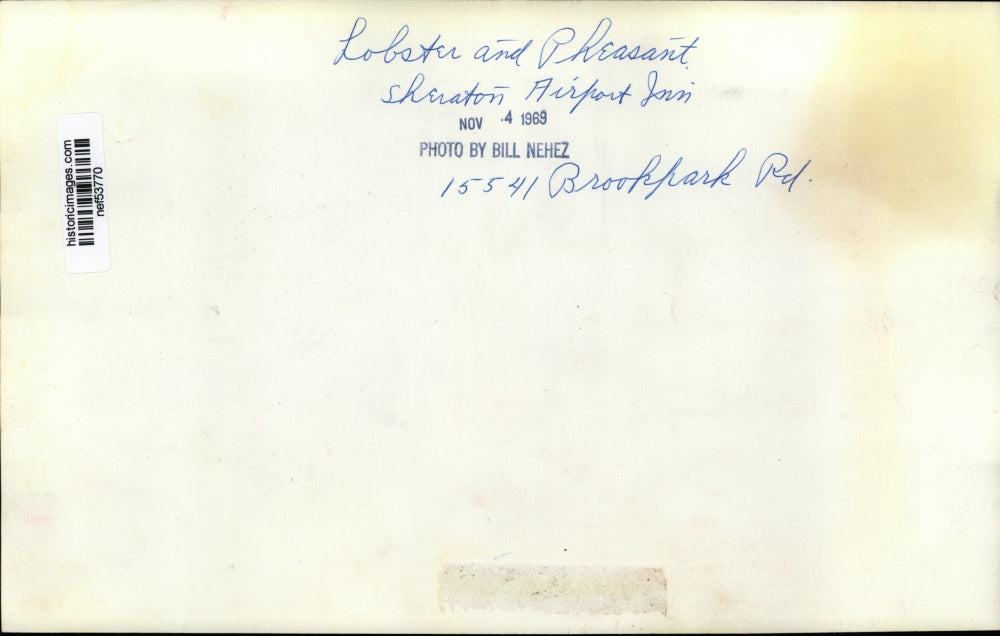 Lobster and Pheasant
Sheraton Airport Inn
NOV 4 1969
PHOTO BY BILL NEHEZ
15541 Brookpark Rd.
historicimages.com
nef53770